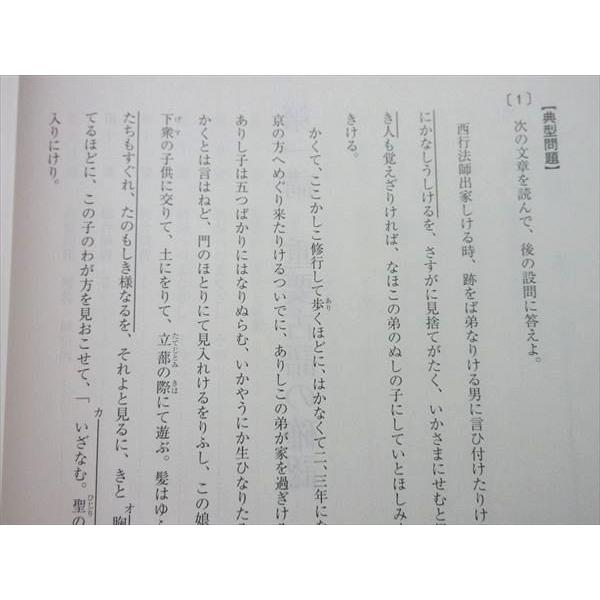 【典型問題】
〔1〕 次の文章を読んで、後の設問に答えよ。
西行法師出家しける時、跡をば弟なりける男に言ひ付けたりけ
にかなしうしけるを、さすがに見捨てがたく、いかさまにせむと
き人も覚えざりければ、なほこの弟のぬしの子にしていとほしみ
きける。
かくて、ここかしこ修行して歩くほどに、はかなくて二、三年に
あり
京の方へめぐり来たりけるついでに、ありしこの弟が家を過ぎけ
ありし子は五つばかりにはなりぬらむ、いかやうにか生ひなりた
かくとは言はねど、門のほとりにて見入れけるをりふし、この娘
下衆の子供に交りて、土にをりて、立蔀の際にて遊ぶ。髪はゆ
げす
たてじとみ
きは
たちもすぐれ、たのもしき様なるを、それよと見るに、きと
オ
胸
てるほどに、この子のわが方を見おこせて、「
カ
いざなむ。聖の
ひじり
入りにけり。